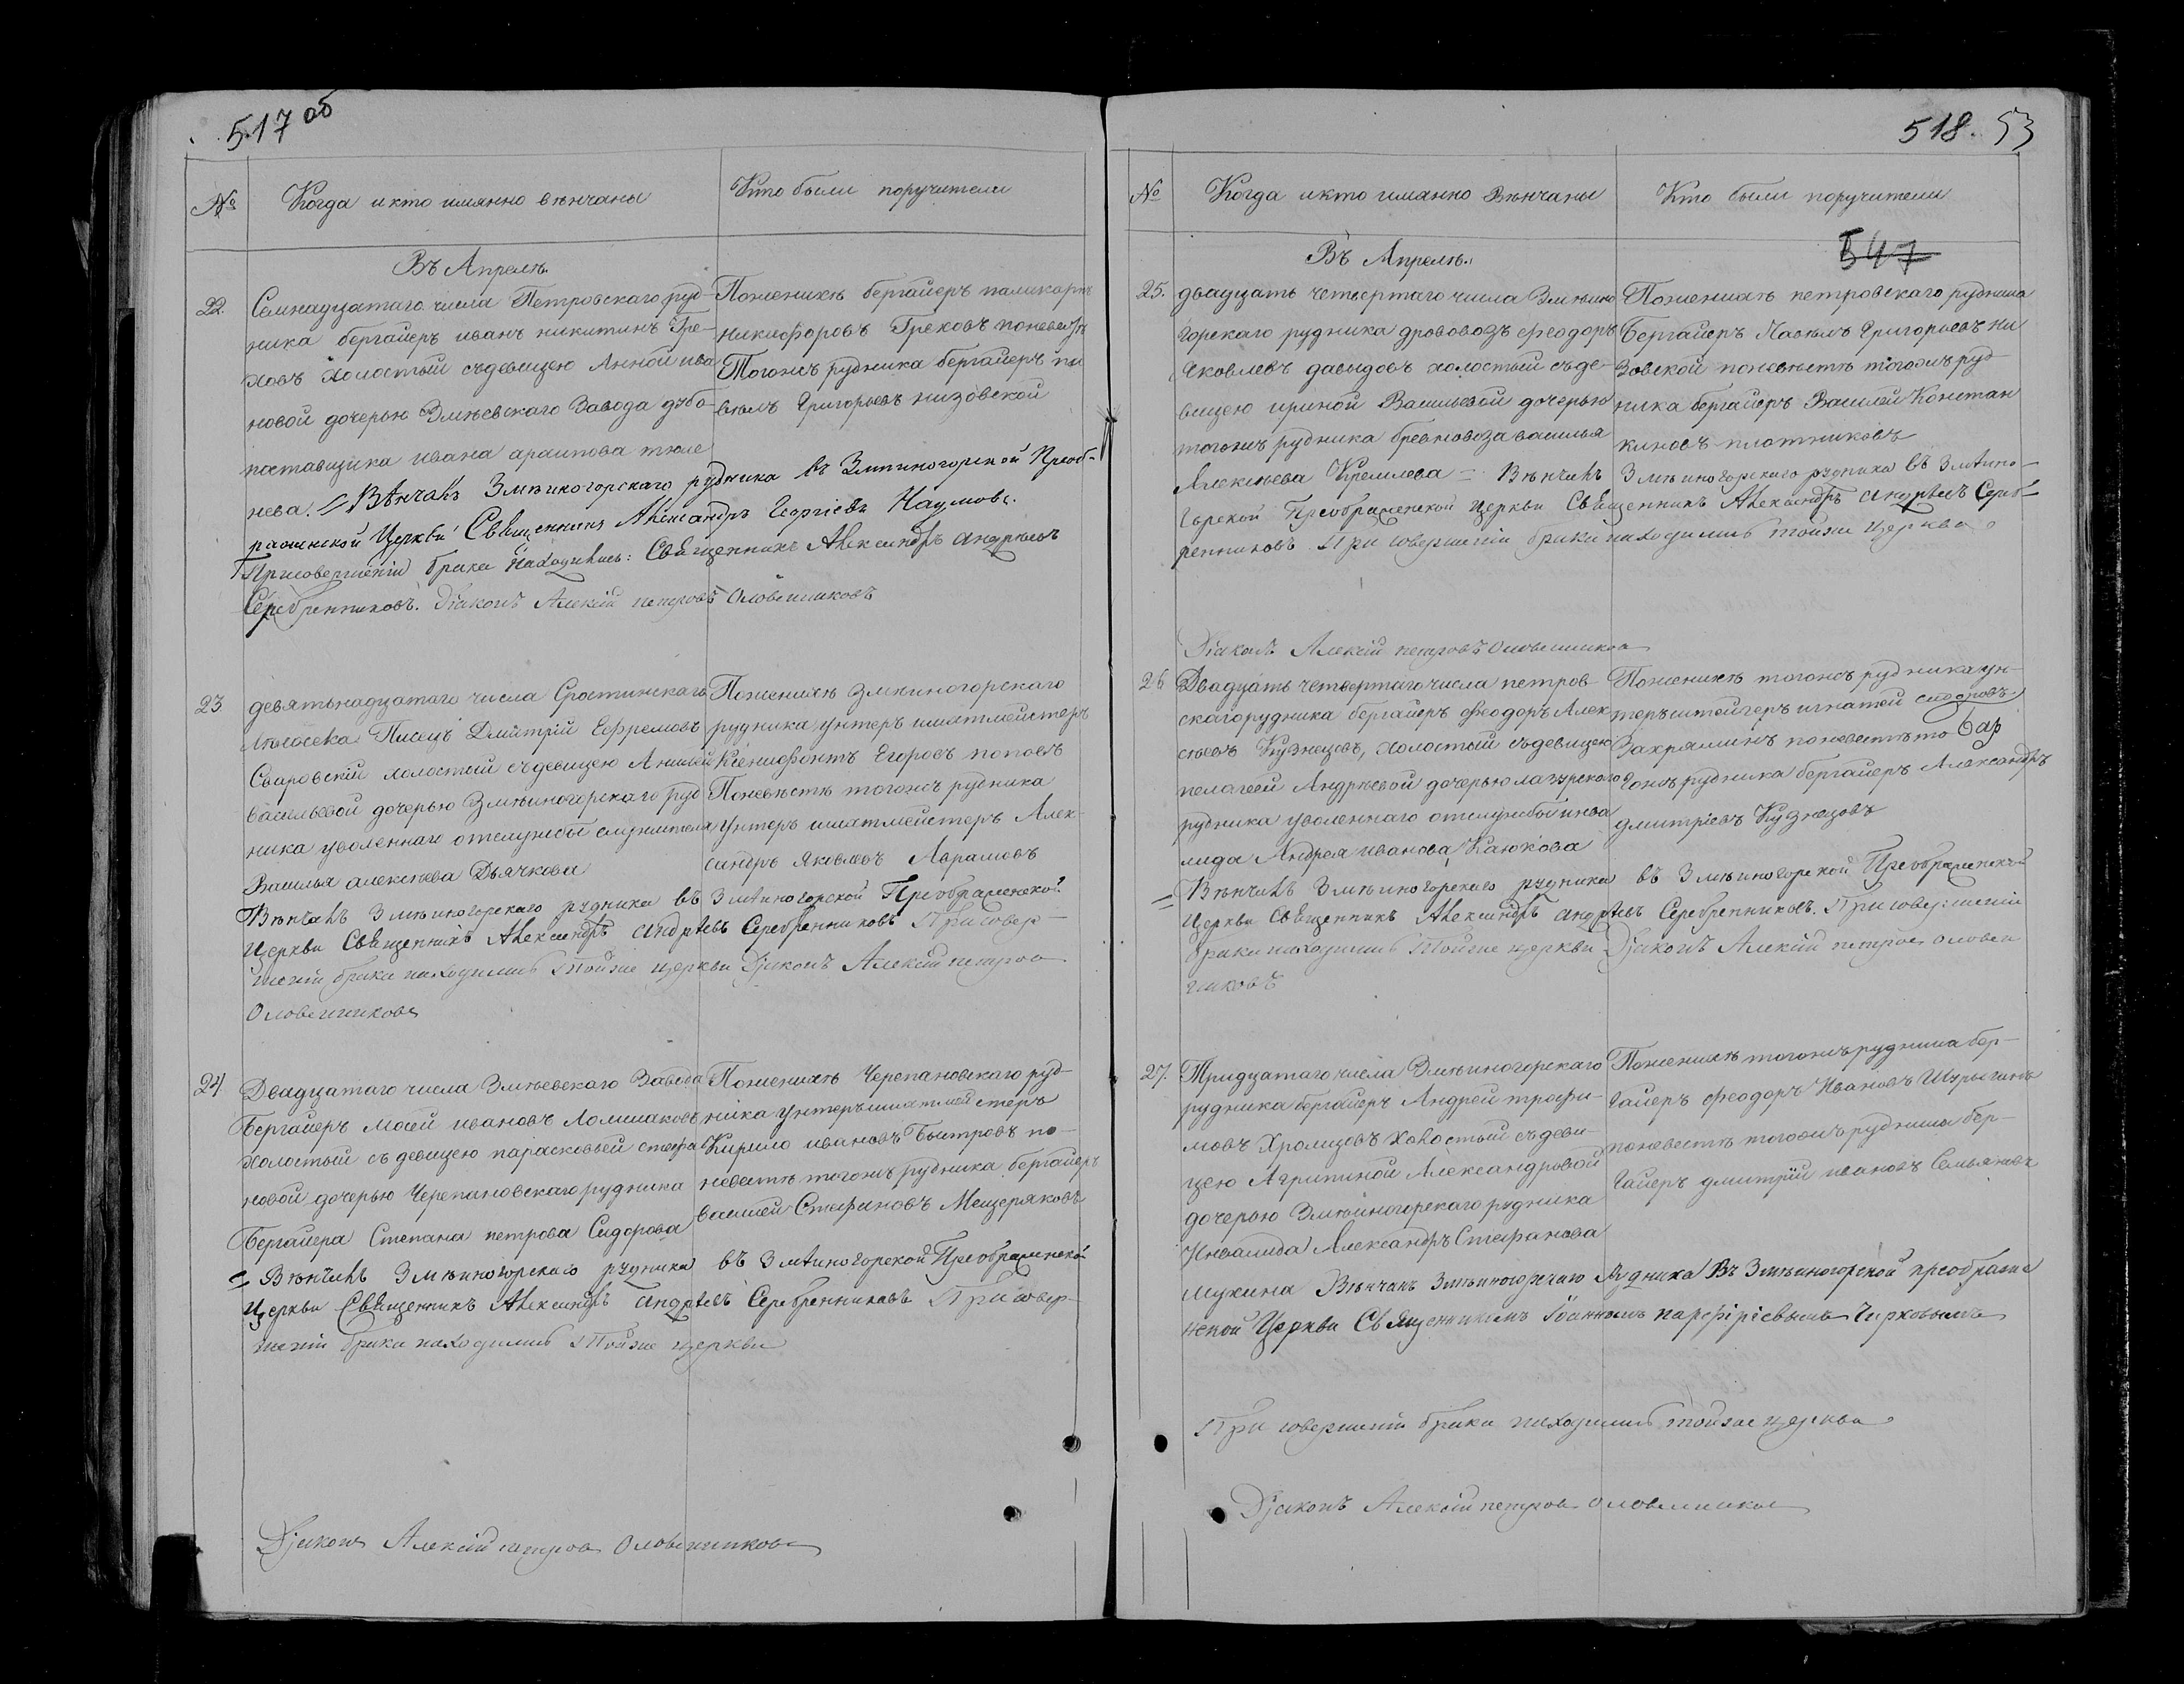 517 об
№ Когда и кто имянно вѣнчаны Кто были поручители
Въ Апрелѣ.
22. Семнадцатаго числа Петровскаго руд-
ника бергайеръ иванъ никитинъ Гре-
ховъ холостый съ девицею Анной ива
новой дочерью Змѣевскаго Завода дубо-
поставщика ивана архипова тюле
нева. Вѣнчалъ Змѣиногорскаго рудника въ Змѣиногорской Преоб-
раженской Церкви Священникъ Александръ Георгіевъ Наумовъ.
При совершеніи брака находились: Священникъ Александръ Андреевъ
Серебренниковъ. Діаконъ Алексій петровъ Оловянишниковъ
Поженихѣ бергайеръ поликарпъ
никифоровъ Греховъ поневестѣ
Тогожъ рудника бергайеръ па
велъ Григорьевъ низовской
23. девятьнадцатаго числа Сростинскаго
Писецъ Дмитрій Ефремовъ
холостый съ девицею Анной
васильевой дочерью Змѣиногорскаго руд
ника уволеннаго отслужбы служителя
Василья алексѣева Дьячкова
Вѣнчалъ Змѣиногорскаго рудника въ Змѣиногорской Преображенской
Церкви Священникъ Александръ Андреевъ Серебренниковъ При совер-
шеніи брака находились Тойже церкви Діаконъ Алексій петровъ
Оловянишниковъ
Поженихѣ Змѣиногорскаго
рудника унтеръ шихтмейстеръ
Ксенофонтъ Егоровъ поповъ
Поневѣстѣ тогожъ рудника
Унтеръ шихтмейстеръ Алек-
сандръ Яковлевъ Аврамовъ
24. Двадцатаго числа Змѣевскаго Завода
Бергайеръ Мосей ивановъ Ломшаковъ
холостый съ девицею парасковьей стефа
новой дочерью Черепановскаго рудника
Бергайера Степана петрова Сидорова
Вѣнчалъ Змѣиногорскаго рудника въ Змѣиногорской Преображенской
Церкви Священникъ Александръ Андреевъ Серебренниковъ При совер-
шеніи брака находились Тойже церкви
Діаконъ Алексій петровъ Оловянишниковъ
Поженихѣ Черепановскаго руд-
ника унтеръшихтмейстеръ
Кирило ивановъ Быстровъ по-
невестѣ тогожъ рудника бергайеръ
василей Стефановъ Мещеряковъ
518. 53
№ Когда и кто имянно Вѣнчаны Кто были поручители
547
Въ Апрелѣ.
25. двадцать четвертаго числа Змѣино
горскаго рудника дрововозъ Феодоръ
Яковлевъ давыдовъ холостый съ де-
вицею ириной Васильевой дочерью
тогожъ рудника бревновоза василья
Алексѣева Кремлева = Вѣнчалъ Змѣиногорскаго рудника въ Змѣино-
горской Преображенской Церкви Священникъ Александръ Андреевъ Сереб-
ренниковъ. При совершеніи брака находились тойже Церкви
Діаконъ Алексій петровъ Оловянишниковъ
Поженихѣ петровскаго рудника
Бергайеръ Павелъ Григорьевъ Ни
зовской поневѣстѣ тогожъ руд-
ника бергайеръ Василей Констан
киновъ плотниковъ
26. Двадцать четвертаго числа петров-
скаго рудника бергайеръ Феодоръ Алек
сѣевъ Кузнецовъ, холостый съ девицею
пелагеей Андреевой дочерью лазурскаго
рудника уволеннаго отслужбы инва
лида Андрея иванова Каюкова
Вѣнчалъ Змѣиногорскаго рудника въ Змѣиногорской Преображенской
Церкви Священникъ Александръ Андреевъ Серебренниковъ. При совершеніи
брака находились Тойже церкви Діаконъ Алексій петровъ оловян
шиковъ
Поженихѣ тогожъ рудника ун-
теръштейгеръ игнатей сидоровъ
Захряминъ поневестѣ то Бар
гожъ рудника бергайеръ Александръ
дмитріевъ Кузнецовъ
27. Тридцатаго числа Змѣиногорскаго
рудника бергайеръ Андрей трофи-
мовъ Хромцовъ холостый съ деви-
цею Агрипиной Александровой
дочерью Змѣиногорскаго рудника
Инвалида Александръ Стефанова
Мухина Вѣнчанъ Змѣиногорскаго Рудника Въ Змѣиногорской преображе
нской Церкви Священникомъ Іоанномъ парфиріевымъ Чирковымъ
При совершеніи брака находились тойже церкви
Діаконъ Алексій петровъ Оловянишниковъ
Поженихѣ тогожъ рудника бер-
гайеръ Феодоръ Ивановъ Шарыгинъ
поневестѣ тогожъ рудника бер-
гайеръ дмитрій ивановъ Семьяновъ